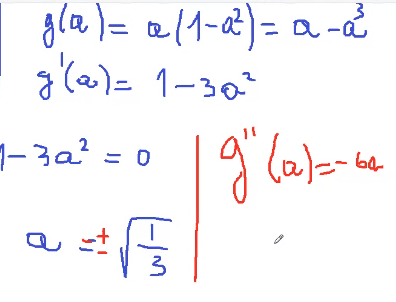 g(a) = a(1-a²) = a - a³
g'(a) = 1 - 3a²
1 - 3a² = 0
a = ± √(1/3)
g''(a) = - 6a